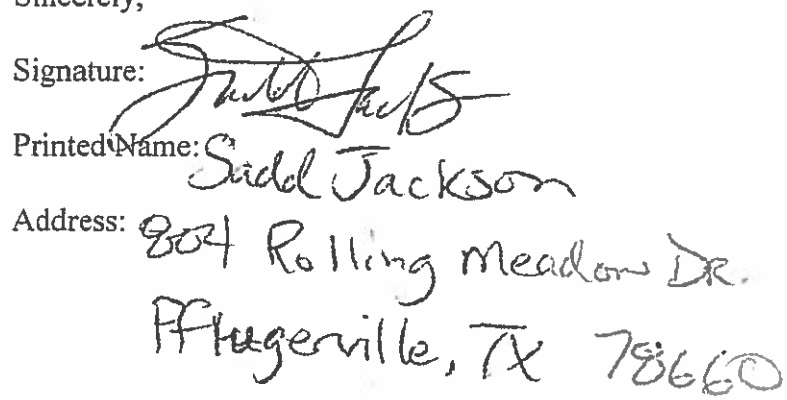 Sincerely,
Signature:
Printed Name: Sadd Jackson
Address: 804 Rolling Meadow DR.
Pflugerville, TX 78660